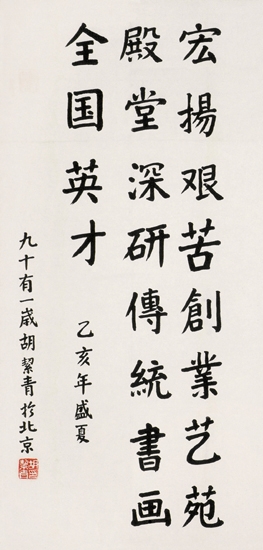 宏揚艰苦創業艺苑
殿堂深研傳統書画
全国英才
乙亥年盛夏
九十有一歳胡絜青於北京